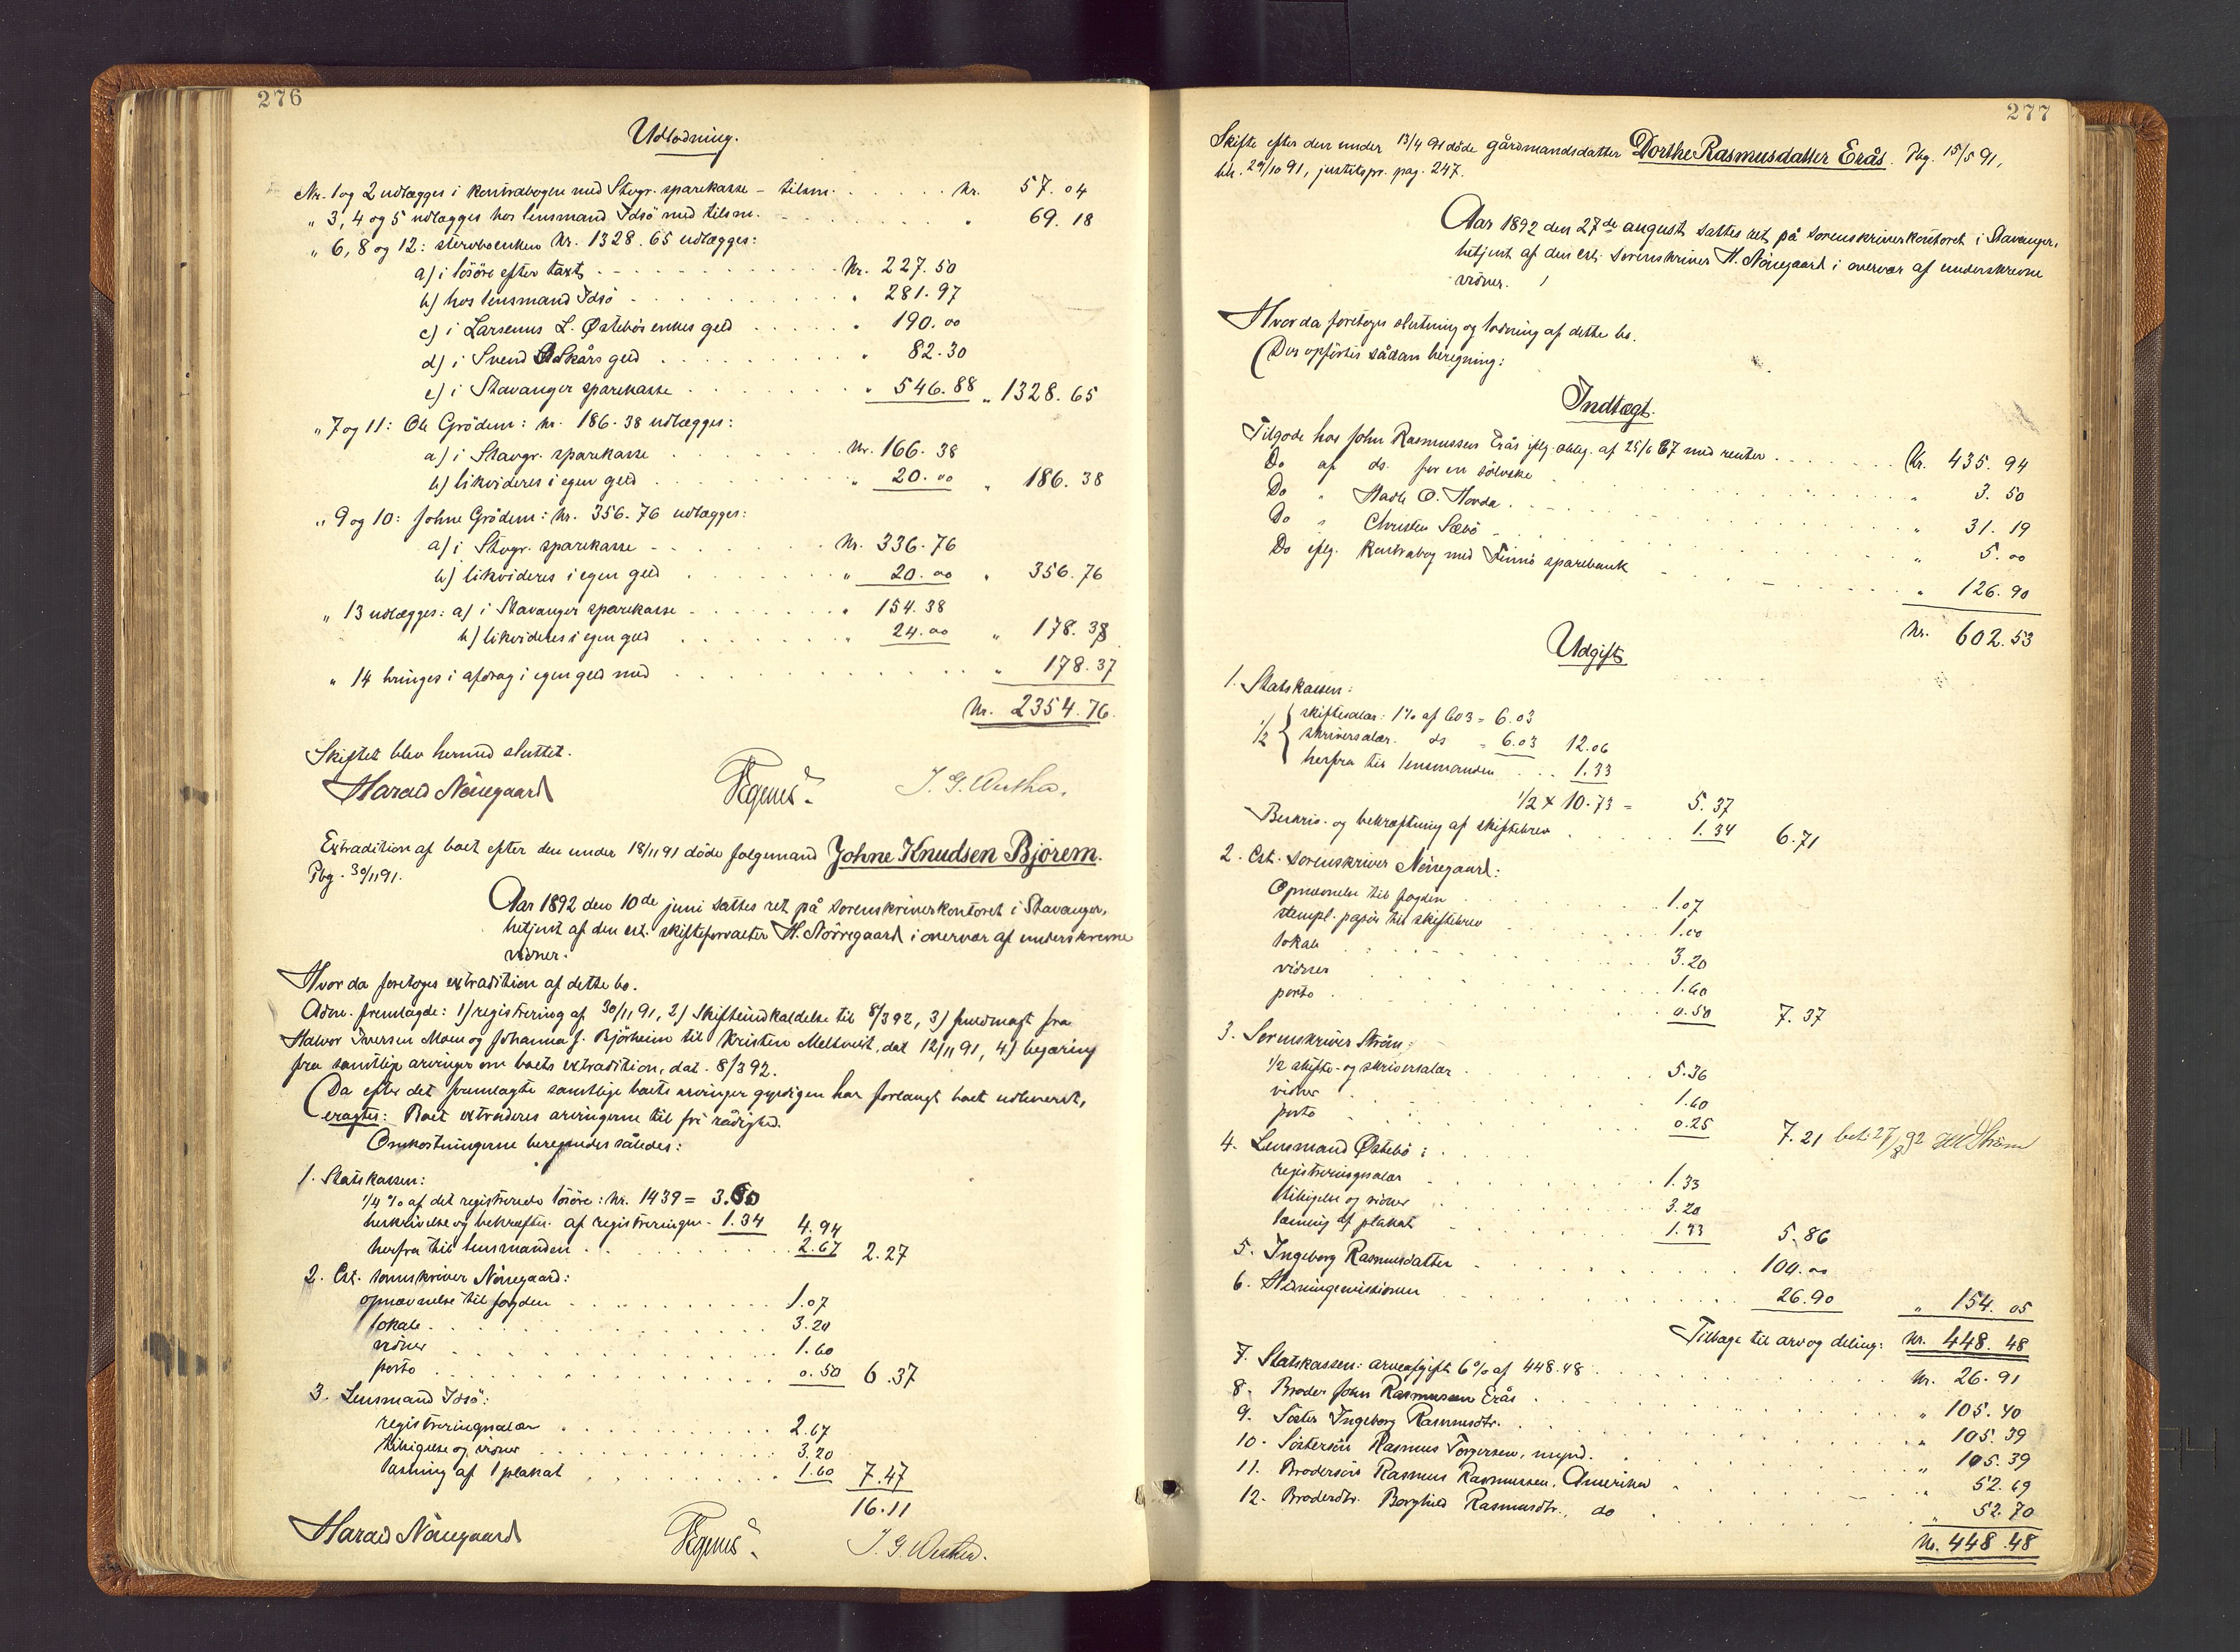 276
Udlodning.
Nr. 1 og 2 udlægges i kontrabogen med Stvgr. sparekasse - tilsm. kr. 57.04
" 3, 4 og 5 udlægges hos lensmand Idsö med tilsm. " 69.18
" 6, 8 og 12: sterboenken kr. 1328.65 udlægges:
a) i lösöre efter taxt kr. 227.50
b) hos lensmand Idsö " 281.97
c) i Larsenus L. Østebös enkes geld " 190.00
d) i Svend Skårs geld " 82.30
e) i Stavanger sparekasse " 546.88 " 1328.65
" 7 og 11: Ole Grödem: kr. 186.38 udlægges:
a) i Stavgr. sparekasse kr. 166.38
b) likvideres i egen geld " 20.00 " 186.38
" 9 og 10: Johne Grödem: kr. 356.76 udlægges:
a) i Stvgr. sparekasse kr. 336.76
b) likvideres i egen geld " 20.00 " 356.76
" 13 udlægges: a) i Stavanger sparekasse " 154.38
b) likvideres i egen geld " 24.00 " 178.38
" 14 bringes i afdrag i egen geld med " 178.37
kr. 2354.76.
Skiftet blev hermed sluttet.
Harald Nörregaard J. G.
Extradition af boet efter den under 18/11 91 döde folgemand Johne Knudsen Bjórem.
Pbg. 30/11 91.
Aar 1892 den 10de juni sattes ret på sorenskriverkontoret i Stavanger,
betjent af den cst. skifteforvalter H. Nörregaard i overvær af underskrevne
vidner:
Hvor da foretoges extradition af dette bo.
Adm. fremlagde: 1) registrering af 30/11 91, 2) Skifteindkaldelse til 8/3 92, 3) fuldmagt fra
Halvor Iversen Moen og Johanna J. Bjórheim til Kristen Meltveit, dat. 12/11 91, 4) begæring
fra samtlige arvinger om boets extradition, dat. 8/3 92.
Da efter det fremlagte samtlige boets arvinger gyldigen har forlangt boet udleveret,
eragtes: Boet extraderes arvingerne til fri rådighed.
Omkostningerne beregnedes således:
1. Statskassen:
1/4 % af det registrerede lösöre: kr. 1439 = 3.60
beskrivelse og bekræftn. af registreringen - 1.34 4.94
herfra til lensmanden 2.67 2.27
2. Cst. sorenskriver Nörregaard:
opnævnelse til fogden 1.07
lokale 3.20
vidner 1.60
porto 0.50 6.37
3. Lensmand Idsö:
registreringssalær 2.67
tilsigelse og vidner 3.20
læsning af 1 plakat 1.60 7.47
16.11
Harald Nörregaard J. G.
277
Skifte efter den under 13/4 91 döde gårdmandsdatter Dorthe Rasmusdatter Erås. Pbg. 15/5 91,
bh. 29/10 91, justitspr. pag. 247.
Aar 1892 den 27de august sattes ret på sorenskriverkontoret i Stavanger,
betjent af den cst. sorenskriver H. Nörregaard i overvær af underskrevne
vidner.
Hvor da foretoges slutning og lodning af dette bo.
Der opförtes sådan beregning:
Indtægt.
Tilgode hos John Rasmussen Erås iflg. oblig. af 25/6 87 med renter kr. 435.94
Do af ds. for en sölvske " 3.50
Do " Hadle O. Hovda " 31.19
Do " Christen Sæbö " 5.00
Do iflg. kontrabog med Finnö sparebank " 126.90
kr. 602.53
Udgift
1. Statskassen:
1/2 { skiftesalær: 1% af 603 = 6.03
skriversalær ds = 6.03 12.06
herfra til lensmanden 1.33
1/2 x 10.73 = 5.37
Beskriv. og bekræftning af skiftebrev 1.34 6.71
2. Cst. sorenskriver Nörregaard:
Opnævnelse til fogden 1.07
stempl. papir til skiftebrev 1.00
lokale 3.20
vidner 1.60
porto 0.50 7.37
3. Sorenskriver Ström:
1/2 skifte- og skriversalær 5.36
vidner 1.60
porto 0.25 7.21 bet. 27/8 92 Ström
4. Lensmand Østebö:
registreringssalær 1.33
tilsigelse og vidner 3.20
læsning af plakat 1.33 5.86
5. Ingeborg Rasmusdatter 100.00
6. Hedningemissionen 26.90 " 154.05
Tilbage til arv og deling: kr. 448.48
7. Statskassen: arveafgift 6% af 448.48 kr. 26.91
8. Broder John Rasmussen Erås " 105.40
9. Söster Ingeborg Rasmusdtr. " 105.39
10. Söstersön Rasmus Torgersen, mynd. " 105.39
11. Brodersön Rasmus Rasmussen, Amerika " 52.69
12. Broderdtr. Borghild Rasmusdtr., do " 52.70
kr. 448.48